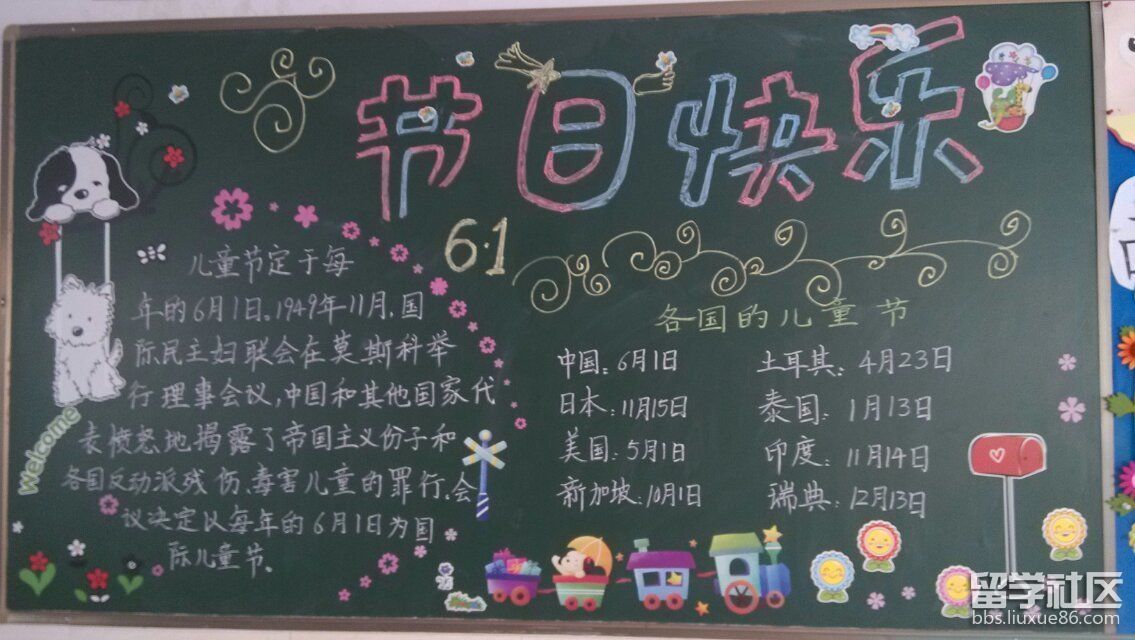 节日快乐
6.1
儿童节定于每
年的6月1日,1949年11月,国
际民主妇联会在莫斯科举
行理事会议,中国和其他国家代
表愤怒地揭露了帝国主义份子和
各国反动派残伤、毒害儿童的罪行,会
议决定以每年的6月1日为国
际儿童节。
各国的儿童节
中国:6月1日
土耳其:4月23日
日本:11月15日
泰国:1月13日
美国:5月1日
印度:11月14日
新加坡:10月1日
瑞典:12月13日
Welcome
留学社区
bbs.liuxue86.com